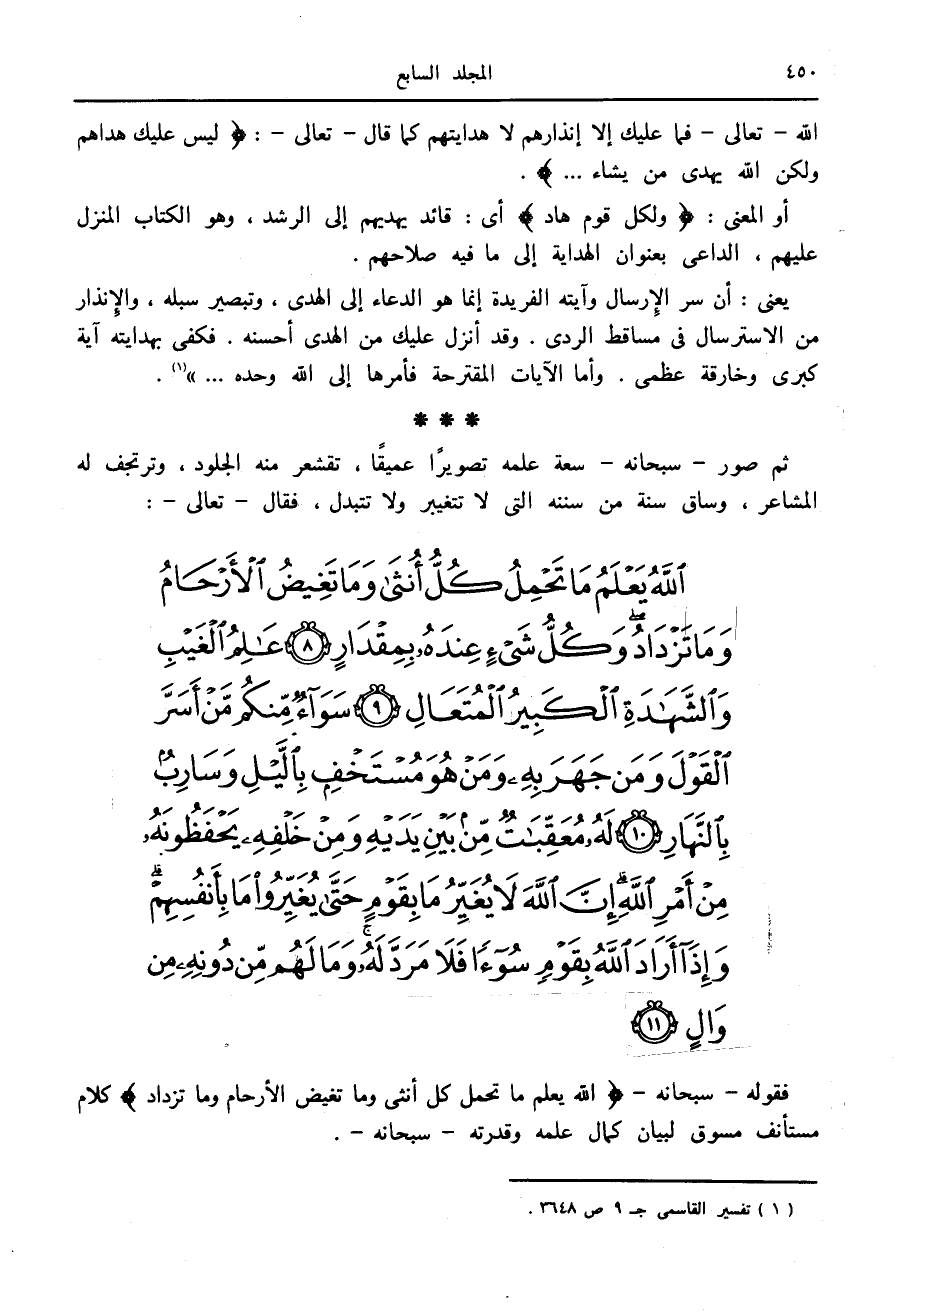 ٤٥٠ المجلد السابع
الله – تعالى – فما عليك إلا إنذارهم لا هدايتهم كما قال – تعالى – : ﴿ ليس عليك هداهم
ولكن الله يهدى من يشاء ... ﴾ .
أو المعنى : ﴿ ولكل قوم هاد ﴾ أى : قائد يهديهم إلى الرشد ، وهو الكتاب المنزل
عليهم ، الداعى بعنوان الهداية إلى ما فيه صلاحهم .
يعنى : أن سر الإرسال وآيته الفريدة إنما هو الدعاء إلى الهدى ، وتبصير سبله ، والإنذار
من الاسترسال فى مساقط الردى . وقد أنزل عليك من الهدى أحسنه . فكفى بهدايته آية
كبرى وخارقة عظمى . وأما الآيات المقترحة فأمرها إلى الله وحده ... »(١) .
* * *
ثم صور – سبحانه – سعة علمه تصويرًا عميقًا ، تقشعر منه الجلود ، وترتجف له
المشاعر ، وساق سنة من سننه التى لا تتغير ولا تتبدل ، فقال – تعالى – :
ٱللَّهُ يَعْلَمُ مَا تَحْمِلُ كُلُّ أُنثَىٰ وَمَا تَغِيضُ ٱلْأَرْحَامُ
وَمَا تَزْدَادُ ۖ وَكُلُّ شَىْءٍ عِندَهُۥ بِمِقْدَارٍ ٨ عَـٰلِمُ ٱلْغَيْبِ
وَٱلشَّهَـٰدَةِ ٱلْكَبِيرُ ٱلْمُتَعَالِ ٩ سَوَآءٌ مِّنكُم مَّنْ أَسَرَّ
ٱلْقَوْلَ وَمَن جَهَرَ بِهِۦ وَمَنْ هُوَ مُسْتَخْفٍۭ بِٱلَّيْلِ وَسَارِبٌۢ
بِٱلنَّهَارِ ١٠ لَهُۥ مُعَقِّبَـٰتٌ مِّنۢ بَيْنِ يَدَيْهِ وَمِنْ خَلْفِهِۦ يَحْفَظُونَهُۥ
مِنْ أَمْرِ ٱللَّهِ ۗ إِنَّ ٱللَّهَ لَا يُغَيِّرُ مَا بِقَوْمٍ حَتَّىٰ يُغَيِّرُوا۟ مَا بِأَنفُسِهِمْ ۗ
وَإِذَآ أَرَادَ ٱللَّهُ بِقَوْمٍ سُوٓءًا فَلَا مَرَدَّ لَهُۥ ۚ وَمَا لَهُم مِّن دُونِهِۦ مِن
وَالٍ ١١
فقوله – سبحانه – ﴿ الله يعلم ما تحمل كل أنثى وما تغيض الأرحام وما تزداد ﴾ كلام
مستأنف مسوق لبيان كمال علمه وقدرته – سبحانه – .
( ١ ) تفسير القاسمى جـ ٩ ص ٣٦٤٨ .